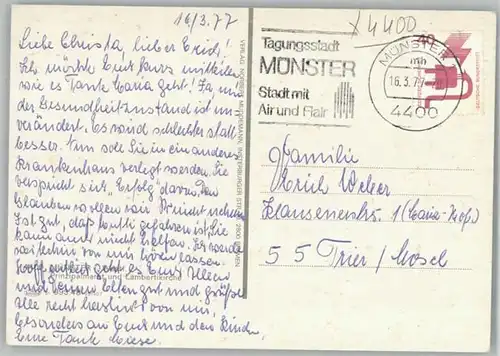 16/3.77
Liebe Christa, lieber Erich!
Ich möchte Euch kurz mitteilen
wie es Tante Maria geht! Ja nun
der Gesundheitszustand ist un-
verändert. Es wird schlechter statt
besser. Nun soll Sie in ein anderes
Krankenhaus verlegt werden. Sie
verspricht sich Erfolg davon. Den
Glauben wollen wir nicht nehmen
Ist gut, daß gefahren ist. Sie
kann auch nicht helfen. Ich werde
von mir hören lassen.
Hoffentlich geht es Euch Allen
und Deinen Eltern gut und grüße
Alle recht herzlich von mir,
besonders an Euch und den Kindern
Eure Tante
Prinzipalmarkt und Lambertikirche
4400
Tagungsstadt
MÜNSTER
Stadt mit
Air und Flair
MÜNSTER
mh
16.3.77
4400
40
DEUTSCHE BUNDESPOST
Familie
Erich Weber
55 Trier/Mosel